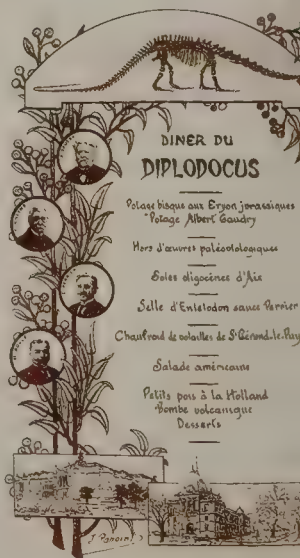 DINER DU
DIPLODOCUS
Potage bisque aux Eryon jurassiques
Potage Albert Gaudry
Hors d'œuvres paléontologiques
Soles oligocènes d'Aix
Selle d'Entelodon sauce Perrier
Chaufroid de volailles de St Gérand-le-Puy
Salade américaine
Petits pois à la Holland
Bombe volcanique
Desserts